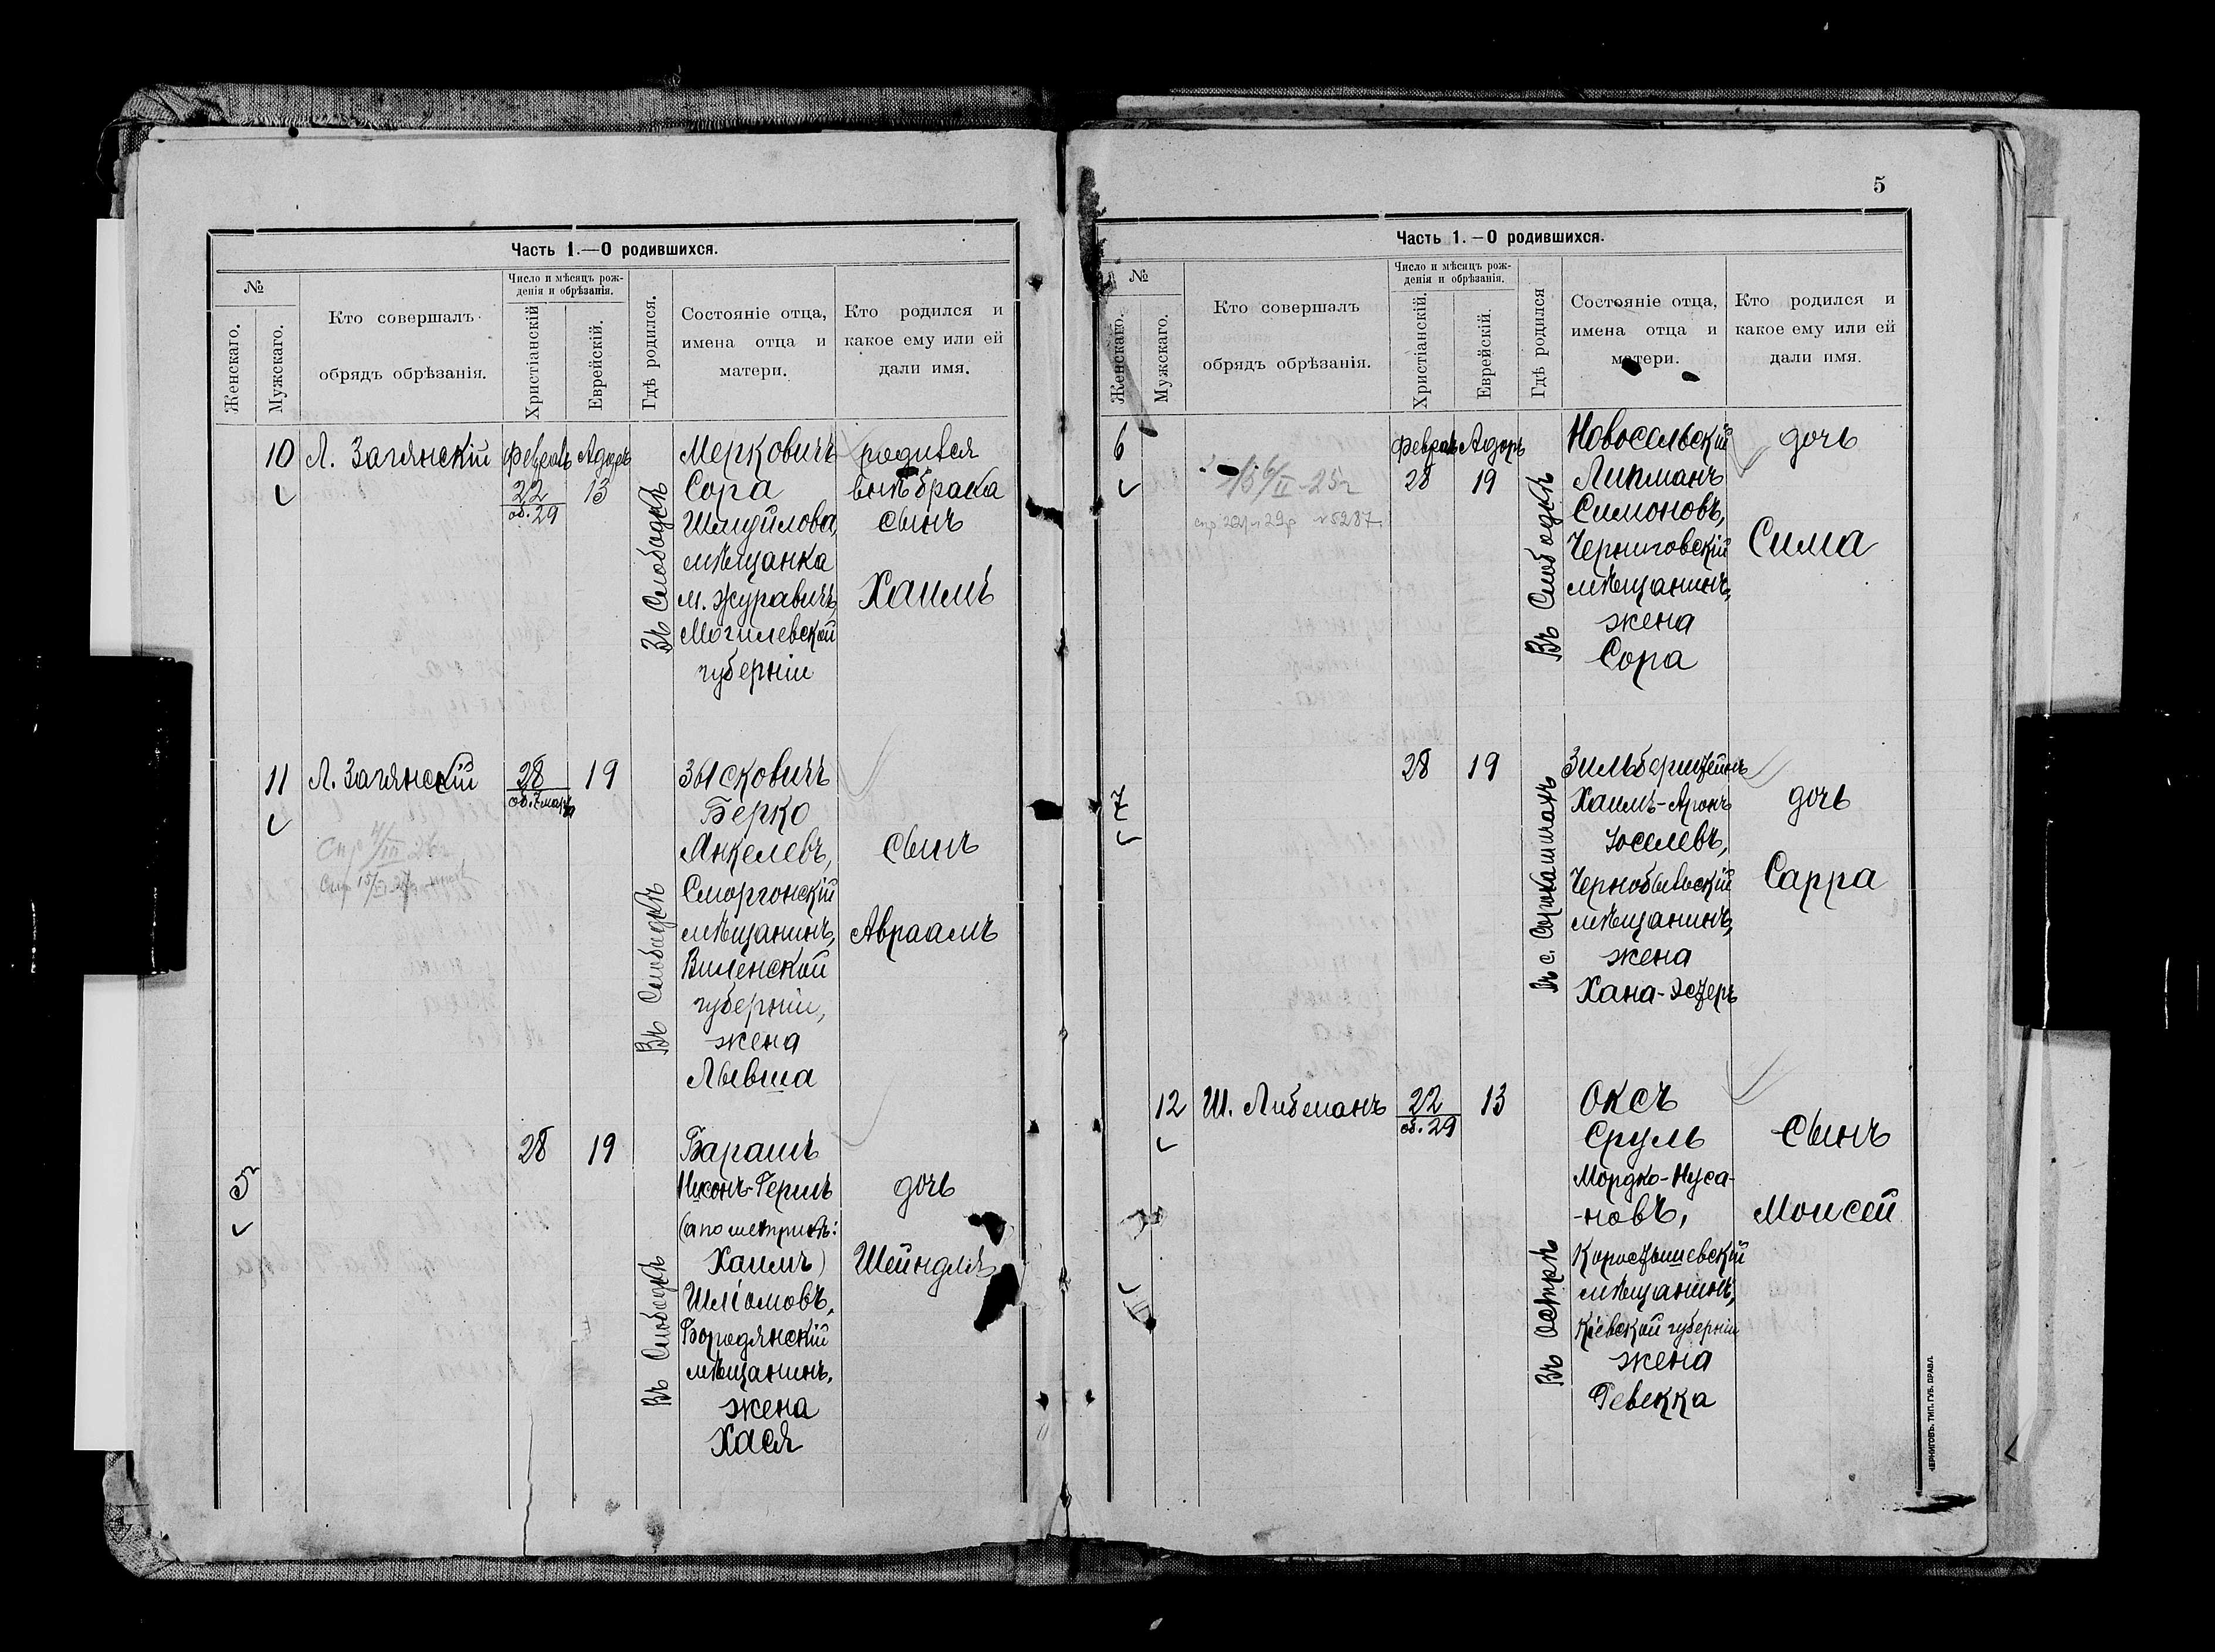 Часть 1.—О родившихся.
№
Женскаго.
Мужскаго.
Кто совершалъ
обрядъ обрѣзанія.
Число и мѣсяцъ рож-
денія и обрѣзанія.
Христіанскій
Еврейскій.
Гдѣ родился.
Состояніе отца,
имена отца и
матери.
Кто родился и
какое ему или ей
дали имя.
10
Л. Загянскій
Февраль
22
об. 29
Адаръ
13
Въ Слободкѣ
Мерковичъ
Сора
Шмуйлова,
мѣщанка
м. Журавичъ
Могилевской
губерніи
родился
внѣ брака
сынъ
Хаимъ
11
Л. Загянскій
28
об. 7 марта
19
Въ Слободкѣ
Зысковичъ
Берко
Янкелевъ,
Сморгонскій
мѣщанинъ,
Виленской
губерніи,
жена
Лывша
сынъ
Авраамъ
5
28
19
Въ Слободкѣ
Барашъ
Нисонъ-Гершъ
(а по метрикѣ:
Хаимъ)
Шліомовъ,
Бородянскій
мѣщанинъ,
жена
Хася
дочь
Шейндля
5
Часть 1.—О родившихся.
№
Женскаго.
Мужскаго.
Кто совершалъ
обрядъ обрѣзанія.
Число и мѣсяцъ рож-
денія и обрѣзанія.
Христіанскій.
Еврейскій.
Гдѣ родился
Состояніе отца,
имена отца и
матери.
Кто родился и
какое ему или ей
дали имя.
6
Февраль
28
Адаръ
19
Въ Слободкѣ
Новосельскій
Липманъ
Симоновъ,
Черниговскій
мѣщанинъ,
жена
Сора
дочь
Сима
7
28
19
Въ с. Сорокашичахъ
Зильберштейнъ
Хаимъ-Аронъ
Іоселевъ,
Чернобыльскій
мѣщанинъ,
жена
Хана-Эстеръ
дочь
Сарра
12
Ш. Либманъ
22
об. 29
13
Въ Острѣ
Оксъ
Сруль
Мордко-Нуса-
-новъ,
Коростышевскій
мѣщанинъ,
Кіевской губерніи
жена
Ревекка
сынъ
Моисей
ЧЕРНИГОВЪ. ТИП. ГУБ. ПРАВЛ.